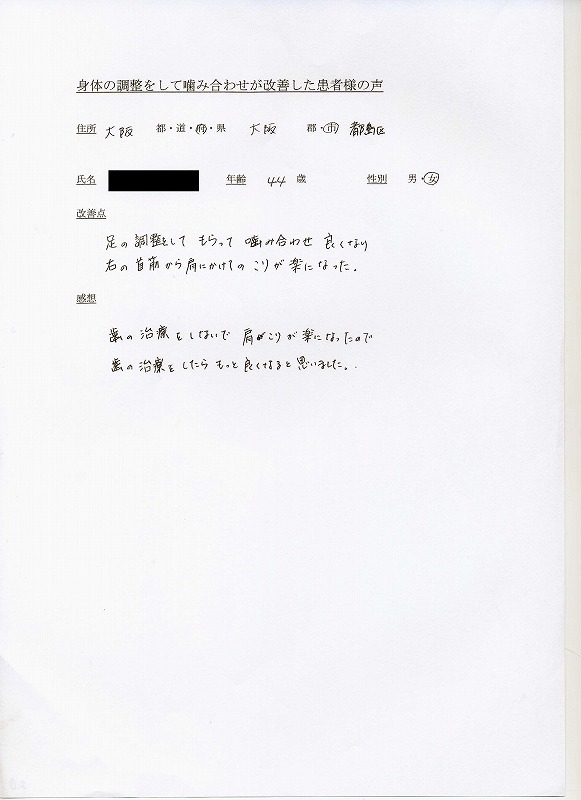 身体の調整をして噛み合わせが改善した患者様の声
住所 大阪 都・道・府・県 大阪 郡・市 都島区
氏名 年齢 44 歳 性別 男・女
改善点
足の調整をして もらって 噛み合わせ 良くなり
右の首筋から肩にかけての こりが楽になった。
感想
歯の治療をしないで 肩がこりが楽になったので
歯の治療をしたら もっと良くなると思いました。